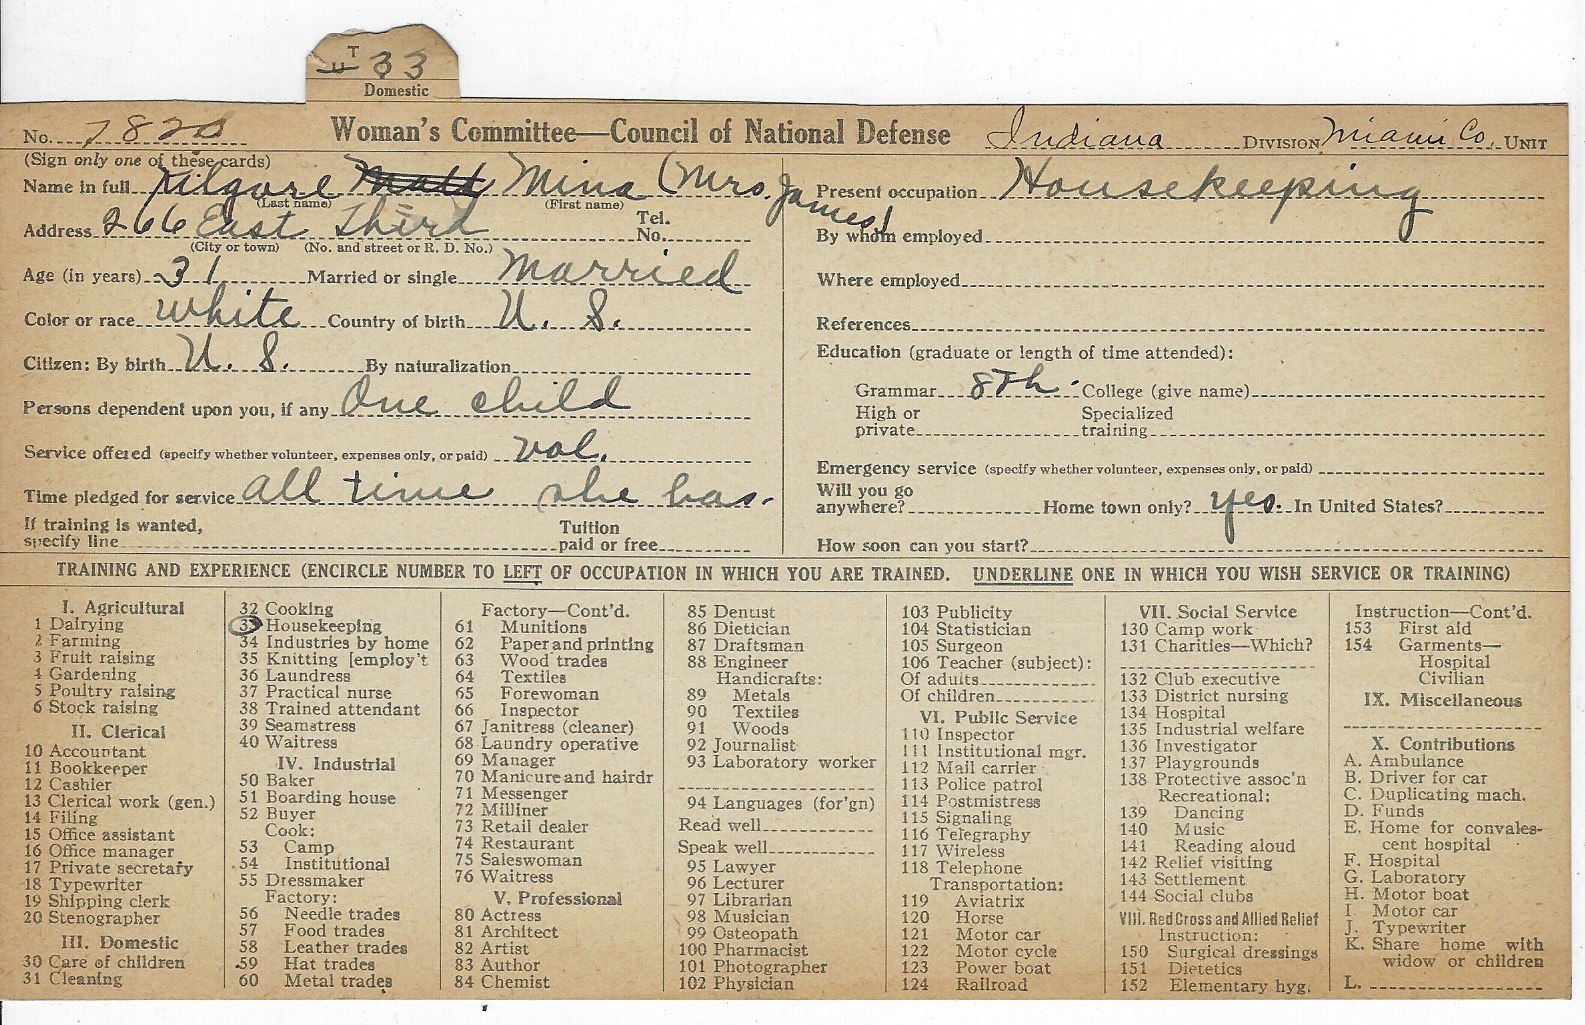 T
U 33
Domestic
No. 7820 Woman's Committee—Council of National Defense Indiana DIVISION Miami Co. UNIT
(Sign only one of these cards)
Name in full Kilgore Matt Mina (Mrs. James)
(Last name) (First name)
Address 266 East Third Tel. No.
(City or town) (No. and street or R. D. No.)
Age (in years) 31 Married or single Married
Color or race White Country of birth U. S.
Citizen: By birth U. S. By naturalization
Persons dependent upon you, if any One child
Service offered (specify whether volunteer, expenses only, or paid) vol.
Time pledged for service all time she has.
If training is wanted, specify line Tuition paid or free
Present occupation Housekeeping
By whom employed
Where employed
References
Education (graduate or length of time attended):
Grammar 8th. College (give name)
High or private Specialized training
Emergency service (specify whether volunteer, expenses only, or paid)
Will you go anywhere? Home town only? yes. In United States?
How soon can you start?
TRAINING AND EXPERIENCE (ENCIRCLE NUMBER TO LEFT OF OCCUPATION IN WHICH YOU ARE TRAINED. UNDERLINE ONE IN WHICH YOU WISH SERVICE OR TRAINING)
I. Agricultural
1 Dairying
2 Farming
3 Fruit raising
4 Gardening
5 Poultry raising
6 Stock raising
II. Clerical
10 Accountant
11 Bookkeeper
12 Cashier
13 Clerical work (gen.)
14 Filing
15 Office assistant
16 Office manager
17 Private secretary
18 Typewriter
19 Shipping clerk
20 Stenographer
III. Domestic
30 Care of children
31 Cleaning
32 Cooking
33 Housekeeping
34 Industries by home
35 Knitting [employ't
36 Laundress
37 Practical nurse
38 Trained attendant
39 Seamstress
40 Waitress
IV. Industrial
50 Baker
51 Boarding house
52 Buyer
Cook:
53 Camp
54 Institutional
55 Dressmaker
Factory:
56 Needle trades
57 Food trades
58 Leather trades
59 Hat trades
60 Metal trades
Factory—Cont'd.
61 Munitions
62 Paper and printing
63 Wood trades
64 Textiles
65 Forewoman
66 Inspector
67 Janitress (cleaner)
68 Laundry operative
69 Manager
70 Manicure and hairdr
71 Messenger
72 Milliner
73 Retail dealer
74 Restaurant
75 Saleswoman
76 Waitress
V. Professional
80 Actress
81 Architect
82 Artist
83 Author
84 Chemist
85 Dentist
86 Dietician
87 Draftsman
88 Engineer
Handicrafts:
89 Metals
90 Textiles
91 Woods
92 Journalist
93 Laboratory worker
94 Languages (for'gn)
Read well
Speak well
95 Lawyer
96 Lecturer
97 Librarian
98 Musician
99 Osteopath
100 Pharmacist
101 Photographer
102 Physician
103 Publicity
104 Statistician
105 Surgeon
106 Teacher (subject):
Of adults
Of children
VI. Public Service
110 Inspector
111 Institutional mgr.
112 Mail carrier
113 Police patrol
114 Postmistress
115 Signaling
116 Telegraphy
117 Wireless
118 Telephone
Transportation:
119 Aviatrix
120 Horse
121 Motor car
122 Motor cycle
123 Power boat
124 Railroad
VII. Social Service
130 Camp work
131 Charities—Which?
132 Club executive
133 District nursing
134 Hospital
135 Industrial welfare
136 Investigator
137 Playgrounds
138 Protective assoc'n
Recreational:
139 Dancing
140 Music
141 Reading aloud
142 Relief visiting
143 Settlement
144 Social clubs
VIII. Red Cross and Allied Relief
Instruction:
150 Surgical dressings
151 Dietetics
152 Elementary hyg.
Instruction—Cont'd.
153 First aid
154 Garments—
Hospital
Civilian
IX. Miscellaneous
X. Contributions
A. Ambulance
B. Driver for car
C. Duplicating mach.
D. Funds
E. Home for convales-
cent hospital
F. Hospital
G. Laboratory
H. Motor boat
I. Motor car
J. Typewriter
K. Share home with
widow or children
L.